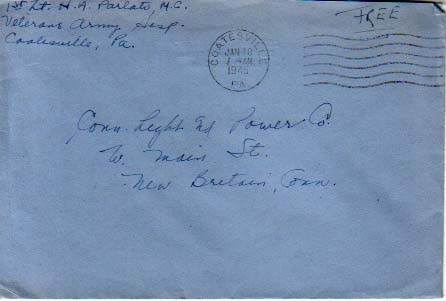 1st Lt. H. A. Parlato, M.C.
Veterans Army Hosp.
Coatesville, Pa.
FREE
COATESVILLE
JAN 18
1945
PA.
Conn. Light & Power Co.
W. Main St.
New Britain, Conn.